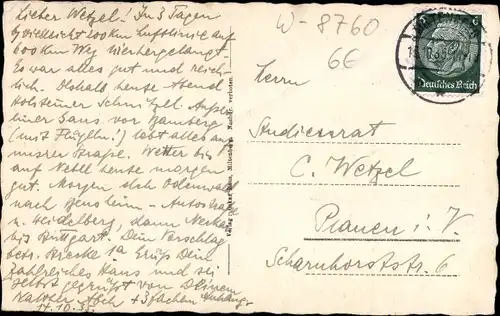 Lieber Wetzel! In 3 Tagen
vielleicht 200 km Luftlinie auf
600 km Weg hierhergelangt
Es war alles gut und reich-
lich. heute Abend
Holsteiner Schnitzel. Außer
einer Gans vor Bamberg
(mit Flügeln!) lebt alles auf
unsrer Straße. Wetter bis
auf Nebel heute morgen
gut. Morgen Odenwald
nach Bensheim - Autostraße
n. Heidelberg, dann Neckar
bis Stuttgart. Dein Vorschlag
betr. Strecke 1a. Grüß Dein
zahlreiches Haus und sei
selbst gegrüßt von Deinem
Walther + 3 fachen Anhang
11.10.
W-8760
6€
Deutsches Reich
Herrn
Studienrat
C. Wetzel
Plauen i. V.
Scharnhorststr. 6